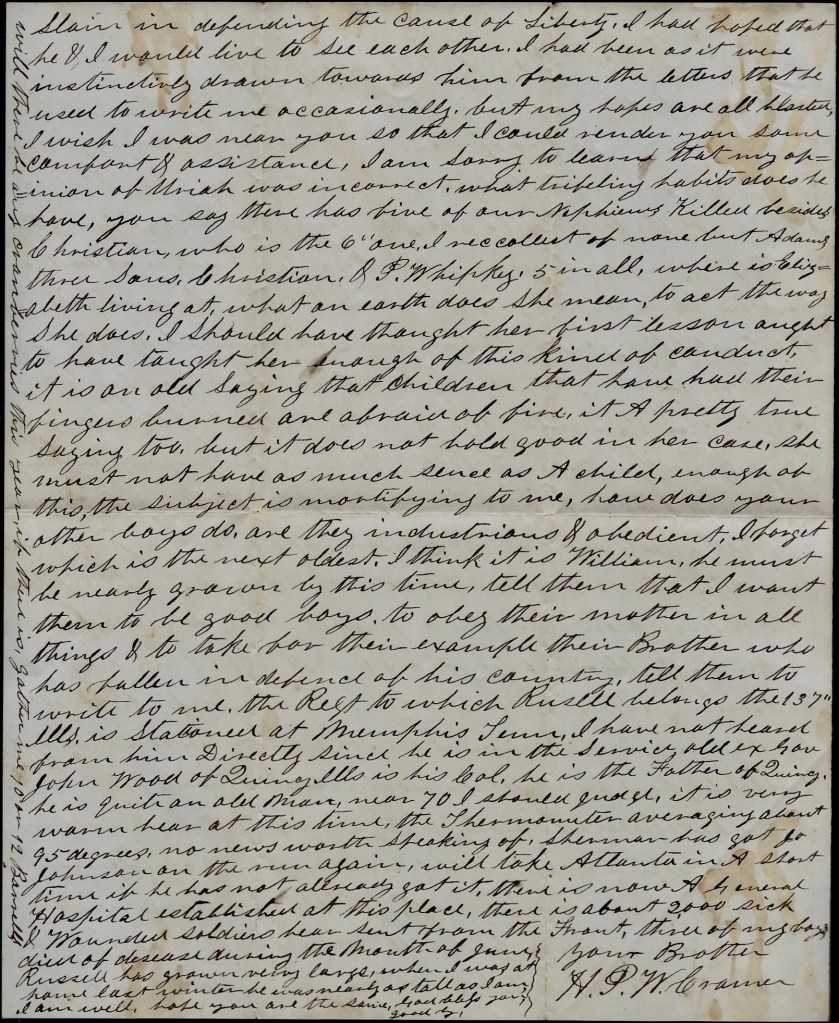 Slain in defending the cause of Liberty. I had hoped that
he & I would live to see each other. I had been as it were
instinctively drawn towards him from the letters that he
used to write me occasionally. but my hopes are all blasted,
I wish I was near you so that I could render you some
comfort & assistance, I am sorry to learn that my op=
inion of Uriah was incorrect, what trifeling habits does he
have, you say there has five of our Nephiews Killed besides
Christian, who is the 6" one, I reccollect of none but Adams
three sons, Christian, & P. Whipkey. 5 in all, where is Eliz=
abeth living at, what on earth does she mean, to act the way
She does. I should have thought her first lesson ought
to have taught her enough of this kind of conduct,
it is an old saying that children that have had their
fingers burned are afraid of fire, it A pretty true
saying too, but it does not hold good in her case, she
must not have as much sence as A child, enough of
this, the subject is mortifying to me, how does your
other boys do, are they industrious & obedient, I forget
which is the next oldest. I think it is William, he must
be nearly grown by this time, tell them that I want
them to be good boys, to obey their mother in all
things & to take for their example their Brother who
has fallen in defence of his country, tell them to
write to me. the Regt to which Rusell belongs the 137"
Ills. is Stationed at Memphis Tenn, I have not heard
from him Directly since he is in the Service, old ex Gov
John Wood of Quincy Ills is his Col, he is the Father of Quincy.
he is quite an old Man, near 70 I should judge, it is very
warm hear at this time, the Thermometer averaging about
95 degrees, no news worth speaking of. Sherman has got Jo
Johnson on the run again, will take Atlanta in A short
time if he has not allready got it, there is now A General
Hospital established at this place, there is about 2000 sick
& Wounded soldiers hear sent from the Front, three of my boys
died of desease during the Month of June,
Russell has grown very large, when I was at
home last winter he was nearly as tall as I am,
I am well, hope you are the same, God bless you
good by,
your Brother
H. P. W. Cramer
will there be any cranberries this year, if there is, gather me, 10 or 12 Barrells